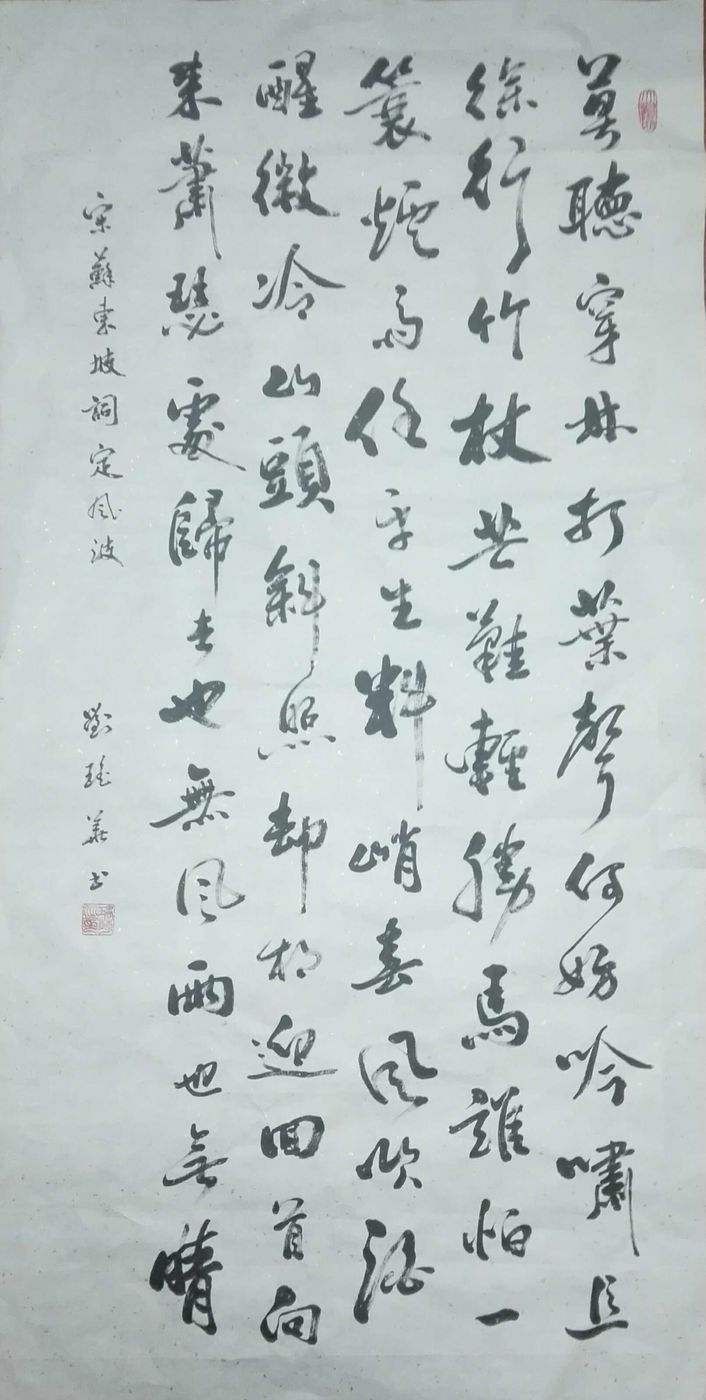 莫聽穿林打葉聲何妨吟嘯且
徐行竹杖芒鞋輕勝馬誰怕一
蓑煙雨任平生料峭春風吹酒
醒微冷山頭斜照却相迎回首向
來蕭瑟處歸去也無風雨也無晴
宋蘇東坡詞定風波
劉瑤華書